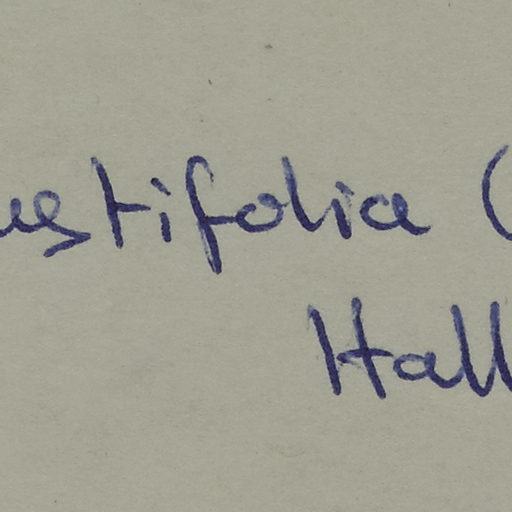 ustifolia (
Hall